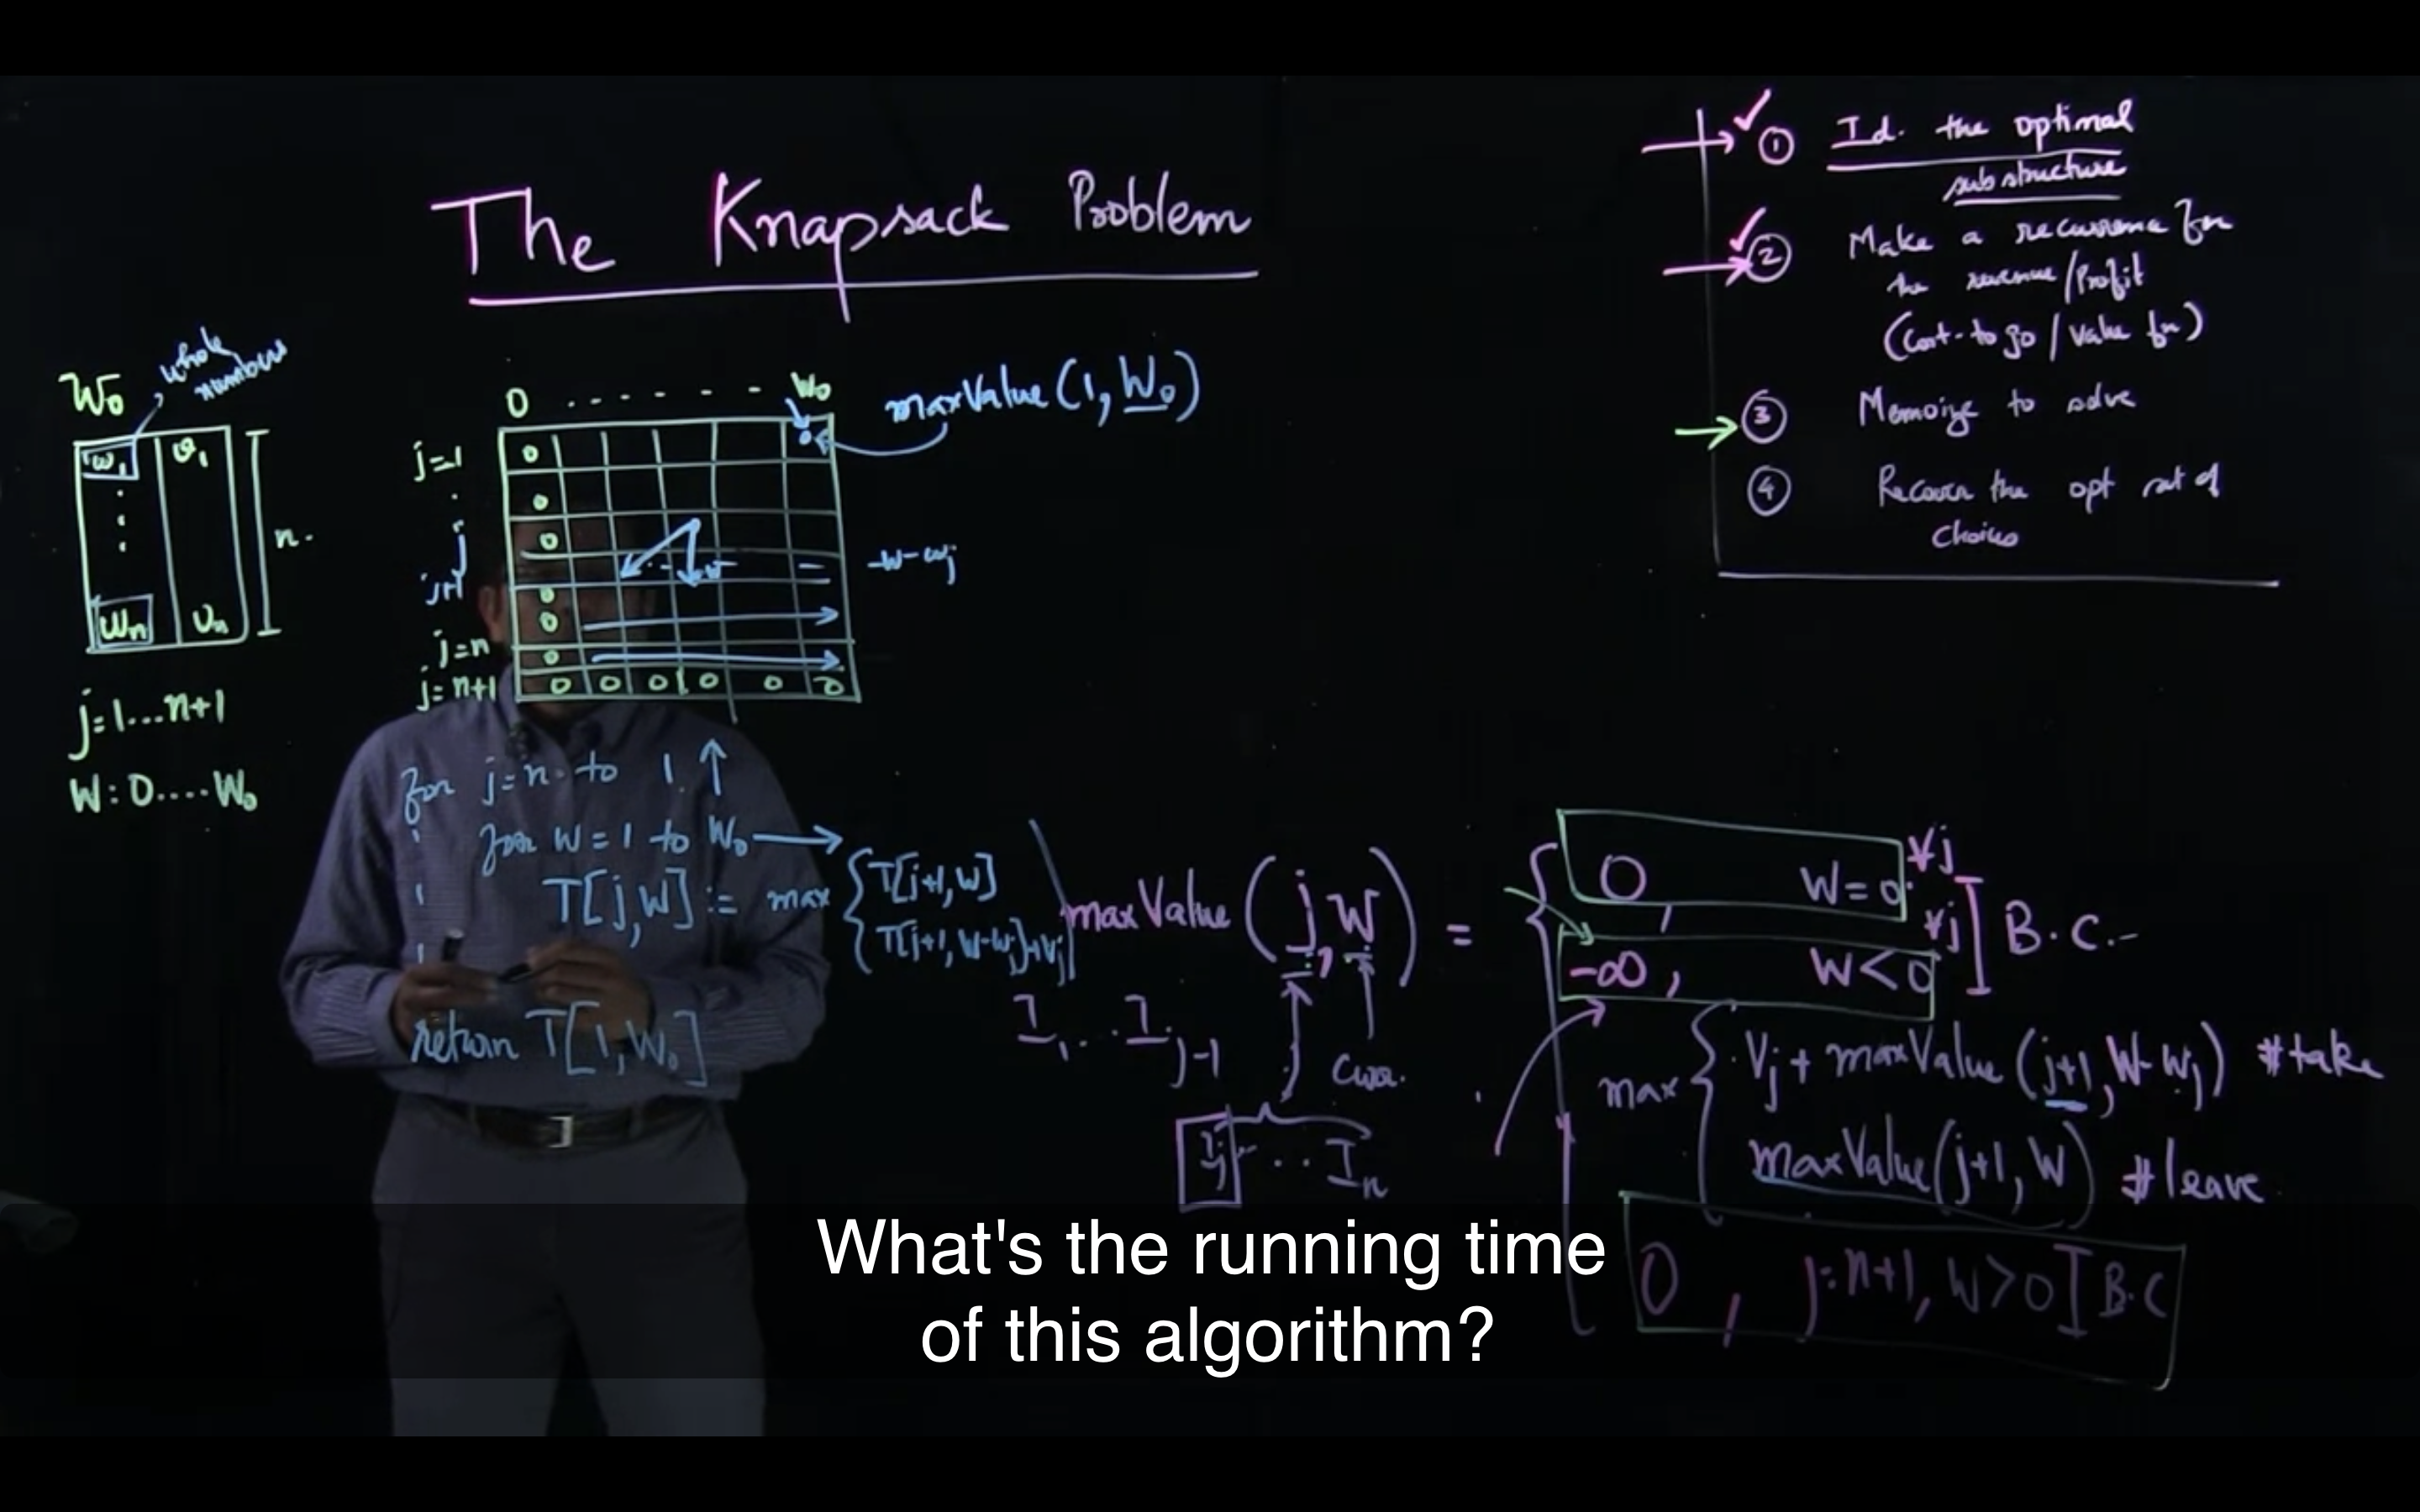 The Knapsack Problem
① Id. the optimal
substructure
② Make a recurrence for
the revenue/Profit
(Cost-to go / Value fn)
③ Memoize to solve
④ Recover the opt set of
choices
W₀
whole
numbers
w₁ v₁
wₙ vₙ
n.
j=1...n+1
W: 0....W₀
0 ....... W₀
maxValue(1, W₀)
j=1 0
0
j 0
j+1 0
0
j=n 0
j=n+1 0 0 0 0 0 0
W-wj
for j=n to 1 ↑
for W=1 to W₀ →
T[j,W] := max { T[j+1,W]
T[j+1, W-wj]+vj
return T[1,W₀]
maxValue(j, W) =
0, W=0 ∀j
-∞, W<0 ∀j
] B.C.
max { Vj + maxValue(j+1, W-wj) #take
maxValue(j+1, W) #leave
0, j=n+1, W>0 ] B.C
I₁...Ij-1
Ij...Iₙ
What's the running time
of this algorithm?